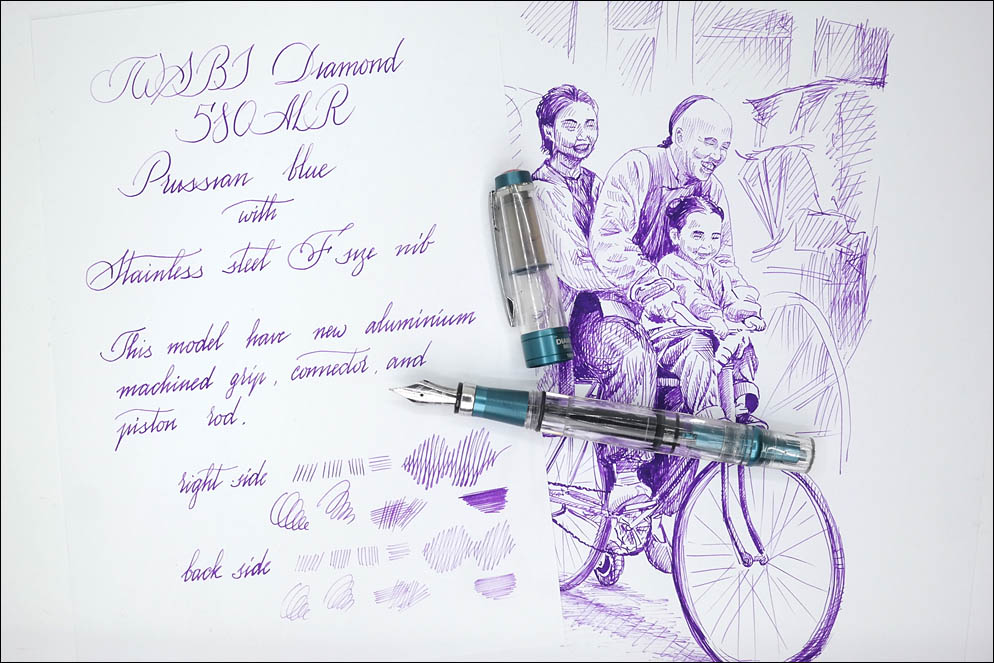 TWSBI Diamond
580ALR
Prussian blue
with
Stainless steel F size nib
This model have new aluminium
machined grip, connector, and
piston rod.
right side
back side